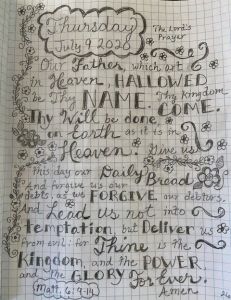 Thursday
July 9 2026
The Lord's
Prayer
Our Father, which art
in Heaven, HALLOWED
be Thy NAME. Thy Kingdom
COME.
Thy Will be done
on Earth as it is in
Heaven. Give us
this day our Daily Bread
And forgive us our
debts, as we FORGIVE our debtors.
And Lead us not into
Temptation, but Deliver us
From evil: for Thine is the
Kingdom, and the POWER
and the GLORY For Ever.
Amen
Matt. 6:9-14